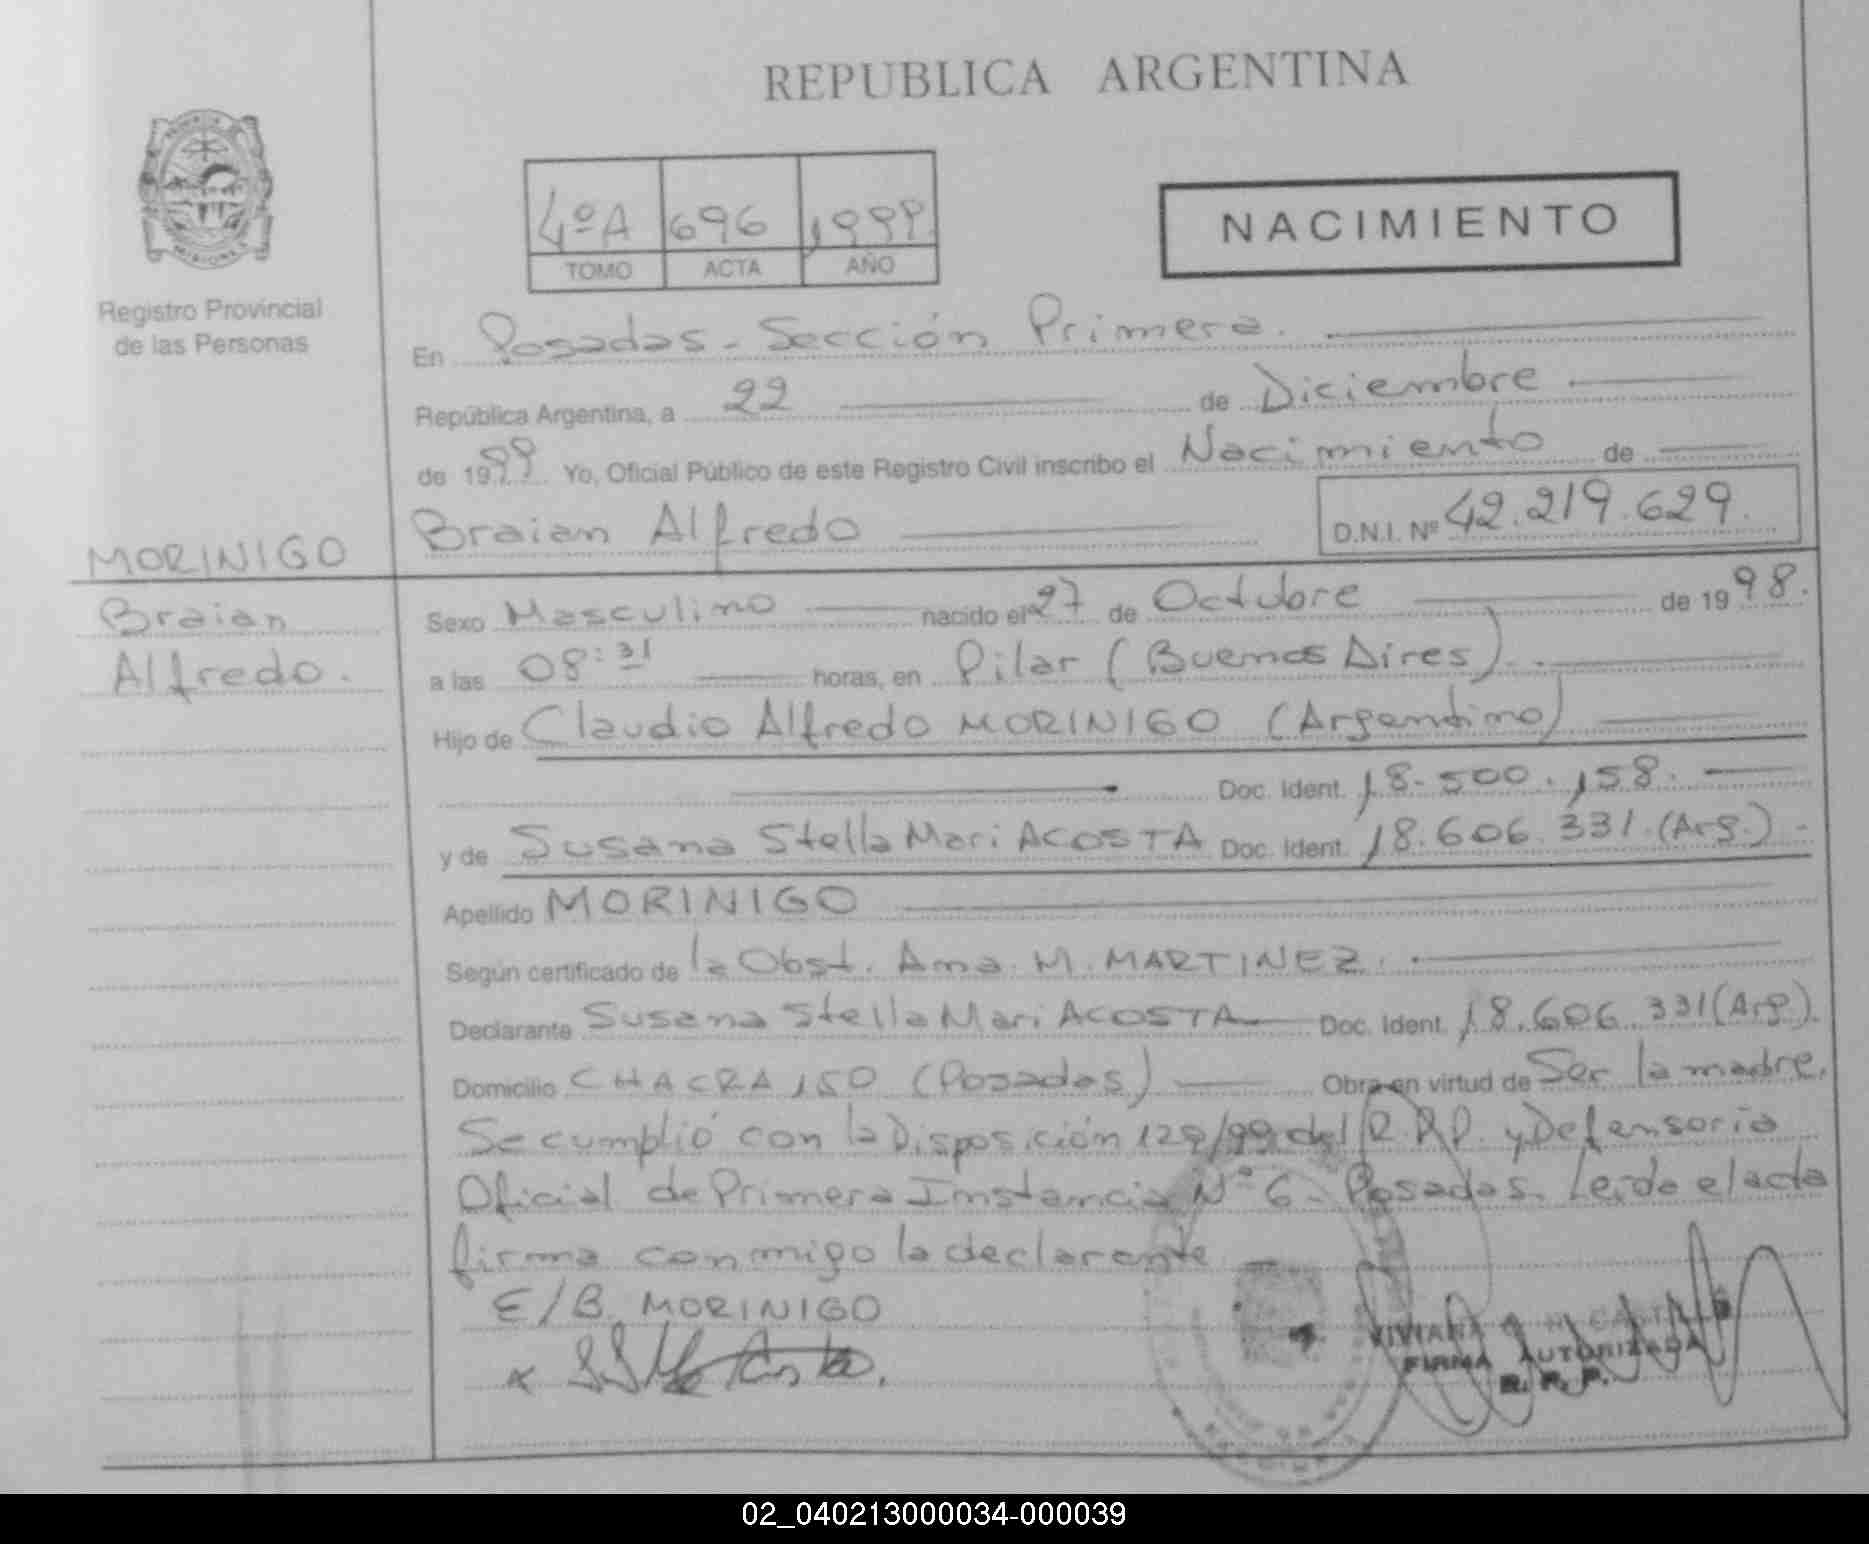 REPUBLICA ARGENTINA
4ºA 696 1999
TOMO ACTA AÑO
NACIMIENTO
Registro Provincial
de las Personas
En Posadas - Sección Primera.
República Argentina, a 22 de Diciembre
de 1999 Yo, Oficial Público de este Registro Civil inscribo el Nacimiento de
Braian Alfredo D.N.I. Nº 42.219.629.
MORINIGO
Braian
Alfredo.
Sexo Masculino nacido el 27 de Octubre de 1998.
a las 08:31 horas, en Pilar (Buenos Aires).
Hijo de Claudio Alfredo MORINIGO (Argentino)
Doc. Ident. 18.500.158.
y de Susana Stella Mari ACOSTA Doc. Ident. 18.606.331.(Arg.)
Apellido MORINIGO
Según certificado de la Obst. Ana. M. MARTINEZ.
Declarante Susana Stella Mari ACOSTA Doc. Ident. 18.606.331(Arg).
Domicilio CHACRA 150 (Posadas) Obra en virtud de Ser la madre.
Se cumplió con la Disposición 129/99 del R.P.P. y Defensoria
Oficial de Primera Instancia Nº 6 - Posadas. Leida el acta
firma conmigo la declarante
E/B. MORINIGO
FIRMA AUTORIZADA
R. P. P.
02_040213000034-000039